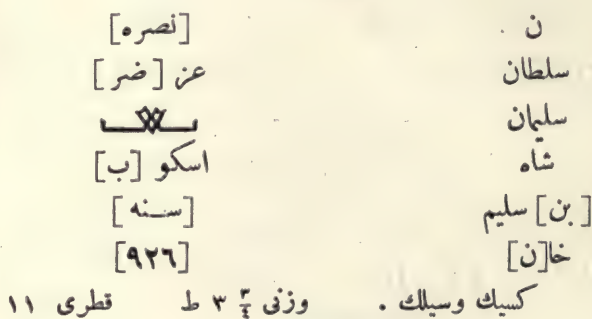 ن .
سلطان
سليمان
شاه
[بن] سليم
خا[ن]
[نصره]
عز [ضر]
اسكو [ب]
[سـنه]
[٩٢٦]
كسيك وسيلك . وزنى ٣ ٣/٤ ط قطرى ١١